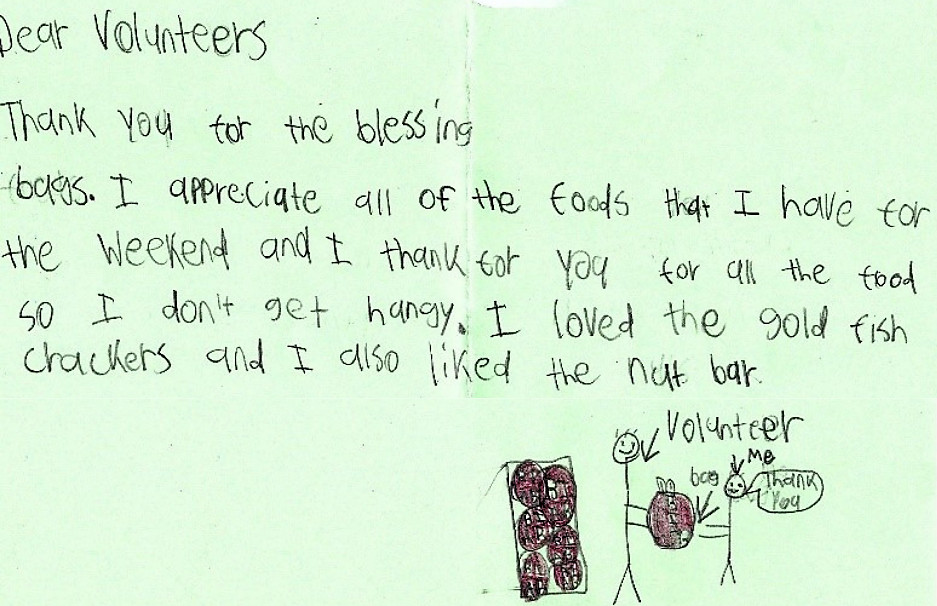 Dear Volunteers
Thank you for the blessing
bags. I appreciate all of the foods that I have for
the weekend and I thank for you for all the food
so I don't get hangy. I loved the gold fish
crackers and I also liked the nut bar.
Volunteer
Me
bag
Thank
You